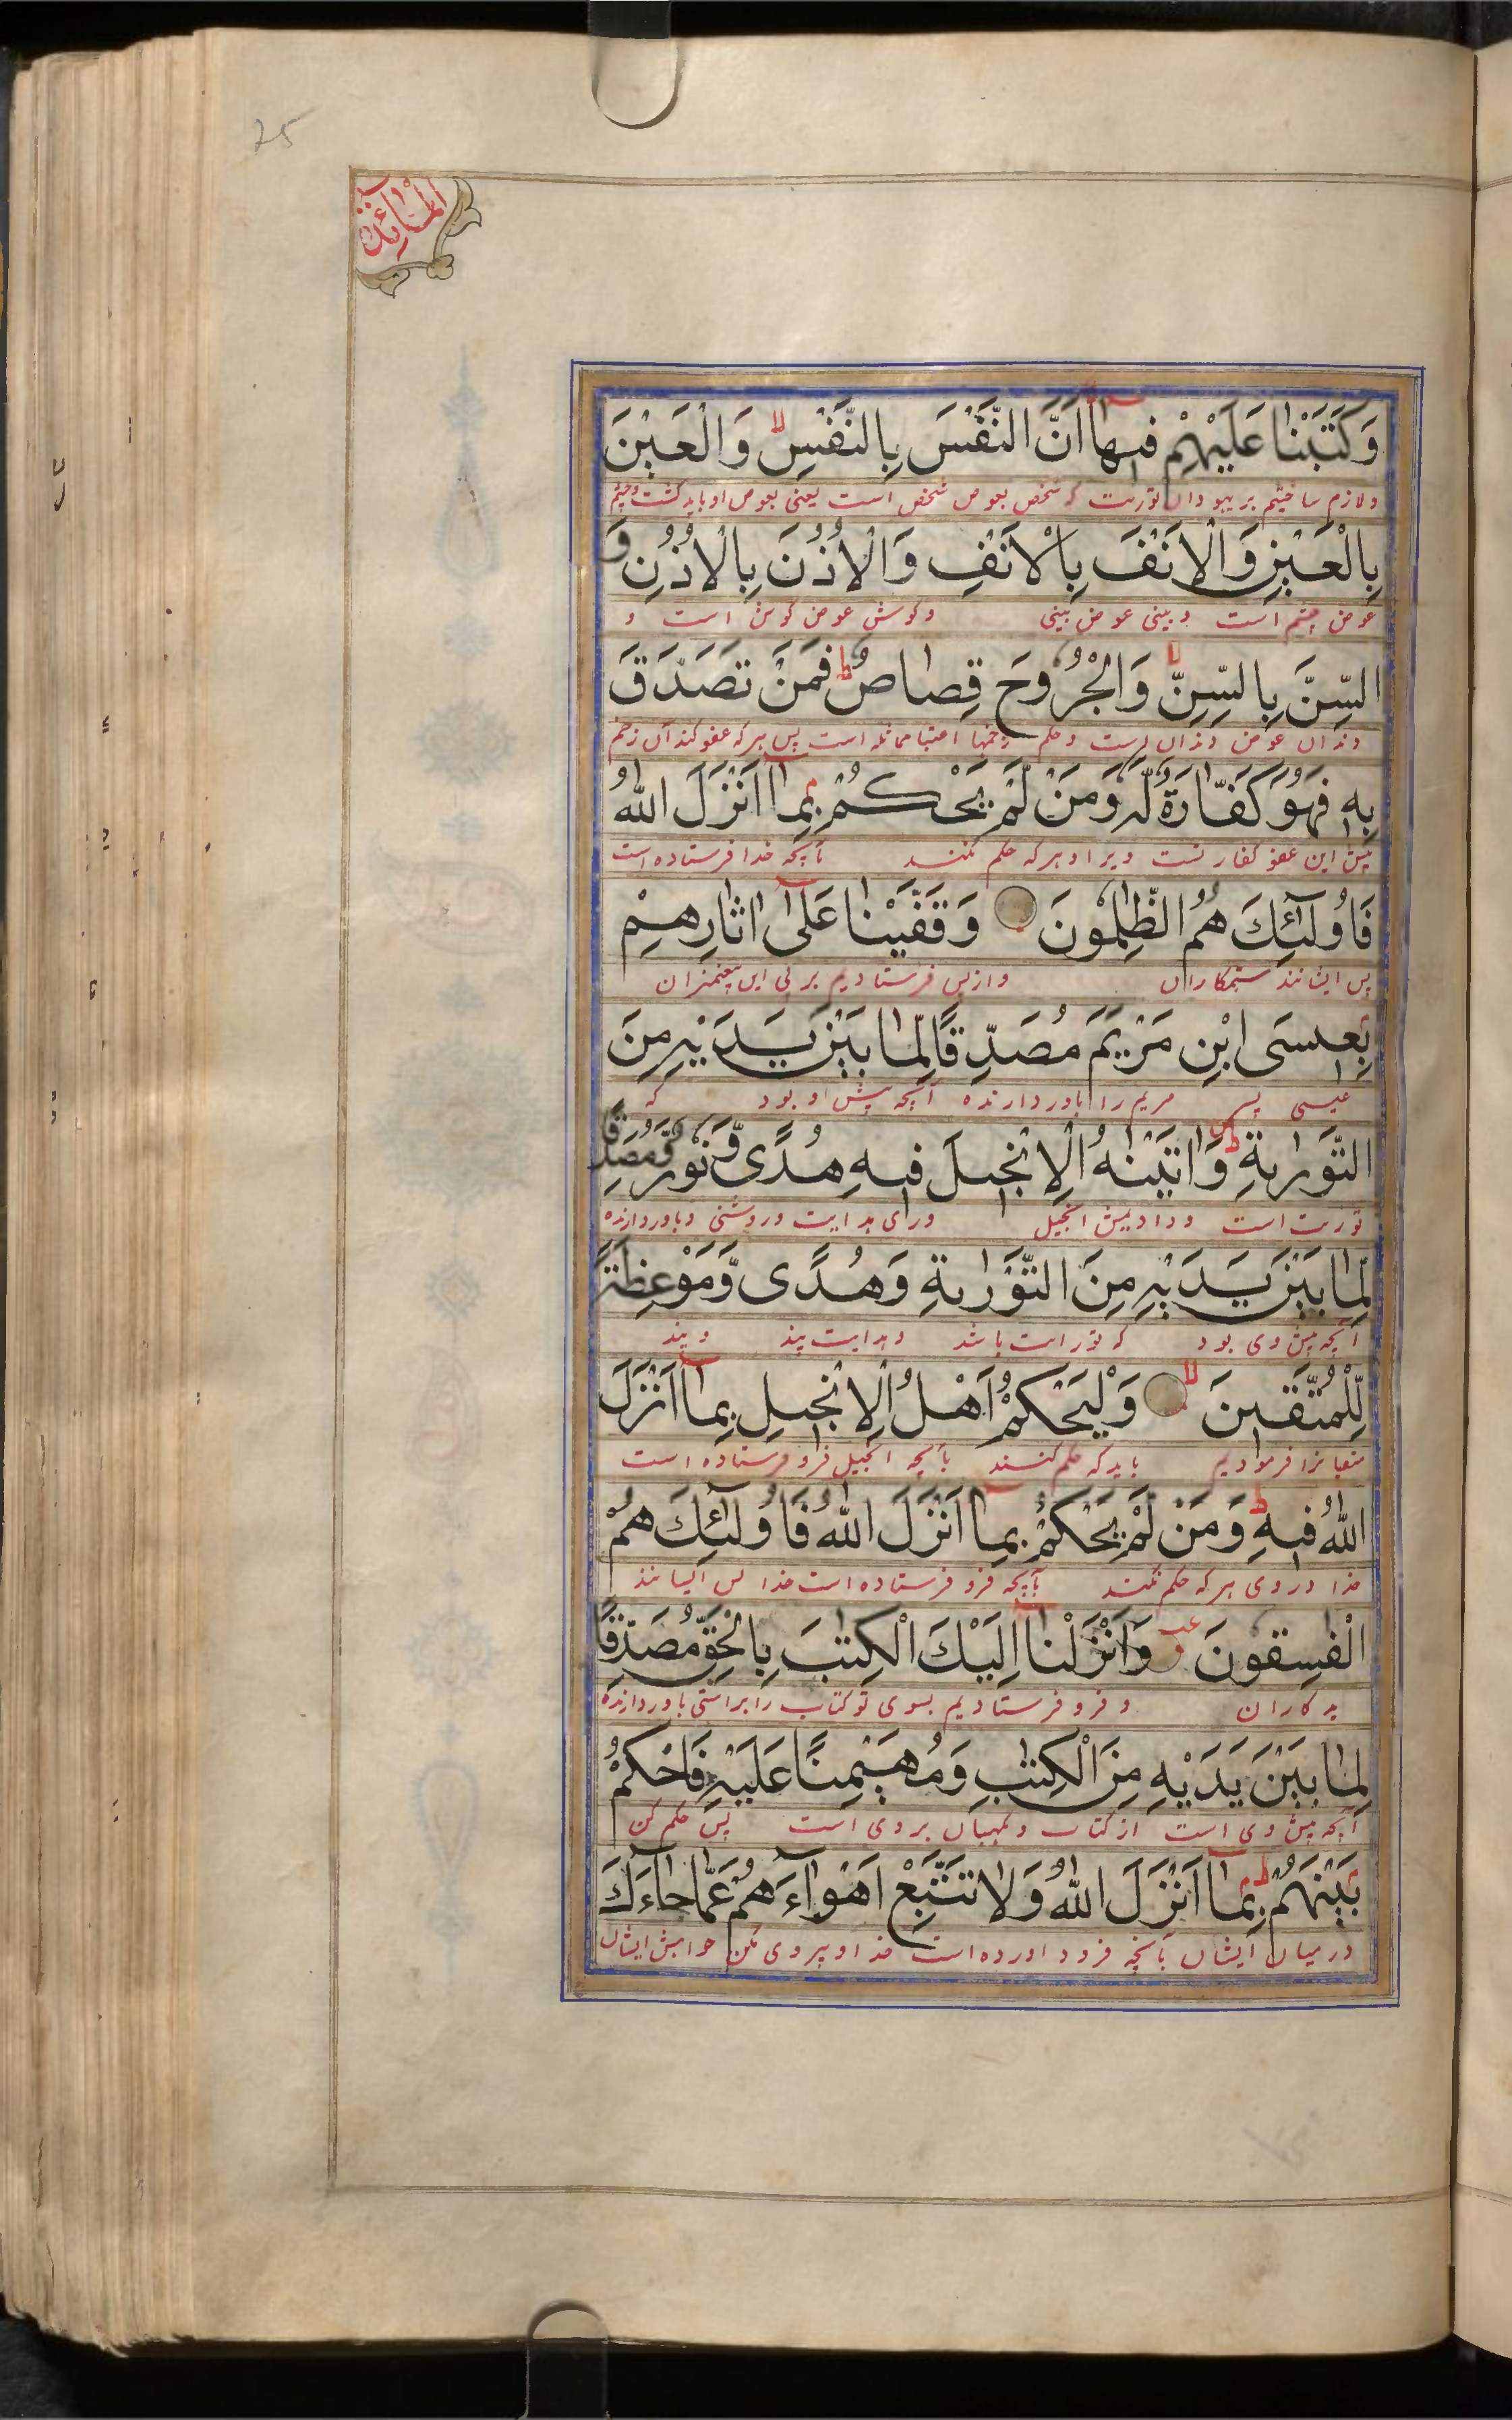 25
المائدة
وَكَتَبْنَا عَلَيْهِمْ فِيهَا أَنَّ النَّفْسَ بِالنَّفْسِ وَالْعَيْنَ
ولازم ساختیم بر یهودان توریت که شخص بعوض شخص است یعنی بعوض او باید کشت وچشم
بِالْعَيْنِ وَالْاَنْفَ بِالْاَنْفِ وَالْاُذُنَ بِالْاُذُنِ وَ
عوض چشم است وبینی عوض بینی وکوش عوض کوش است و
السِّنَّ بِالسِّنِّ وَالْجُرُوحَ قِصَاصٌ فَمَنْ تَصَدَّقَ
دندان عوض دندان است وحکم زخمها مماثله است پس هرکه عفو کند آن زخم
بِهِ فَهُوَ كَفَّارَةٌ لَهُ وَمَنْ لَمْ يَحْكُمْ بِمَا اَنْزَلَ اللهُ
پس این عفو کفارتست ویرا وهرکه حکم نکند بآنچه خدا فرستاده است
فَاُولٰٓئِكَ هُمُ الظّٰلِمُونَ وَقَفَّيْنَا عَلٰٓى اٰثَارِهِمْ
پس ایشانند ستمکاران واز پس فرستادیم بر پی این پیغمبران
بِعِيسَى ابْنِ مَرْيَمَ مُصَدِّقًا لِمَا بَيْنَ يَدَيْهِ مِنَ
عیسی پسر مریم را باوردارنده آنچه پیش او بود که
التَّوْرٰيةِ وَاٰتَيْنٰهُ الْاِنْجِيلَ فِيهِ هُدًى وَّنُورٌ وَّمُصَدِّقًا
توریت است ودادیمش انجیل درای هدایت وروشنی وباوردارنده
لِمَا بَيْنَ يَدَيْهِ مِنَ التَّوْرٰيةِ وَهُدًى وَّمَوْعِظَةً
آنچه پیش وی بود که تورات باشد وهدایت پند وپند
لِّلْمُتَّقِينَ وَلْيَحْكُمْ اَهْلُ الْاِنْجِيلِ بِمَا اَنْزَلَ
متقیانرا فرمودیم باید که حکم کنند بآنچه انجیل فرو فرستاده است
اللهُ فِيهِ وَمَنْ لَمْ يَحْكُمْ بِمَا اَنْزَلَ اللهُ فَاُولٰٓئِكَ هُمُ
خدا در وی هرکه حکم نکند بآنچه فرو فرستاده است خدا پس ایشانند
الْفٰسِقُونَ وَاَنْزَلْنَا اِلَيْكَ الْكِتٰبَ بِالْحَقِّ مُصَدِّقًا
بدکاران و فرو فرستادیم بسوی تو کتاب را براستی باوردارنده
لِمَا بَيْنَ يَدَيْهِ مِنَ الْكِتٰبِ وَمُهَيْمِنًا عَلَيْهِ فَاحْكُمْ
آنچه پیش وی است از کتاب ونگهبان بر وی است پس حکم کن
بَيْنَهُمْ بِمَا اَنْزَلَ اللهُ وَلَا تَتَّبِعْ اَهْوَآءَهُمْ عَمَّا جَآءَكَ
درمیان ایشان بآنچه فرود اورده است خدا وپیروی مکن خواهش ایشان